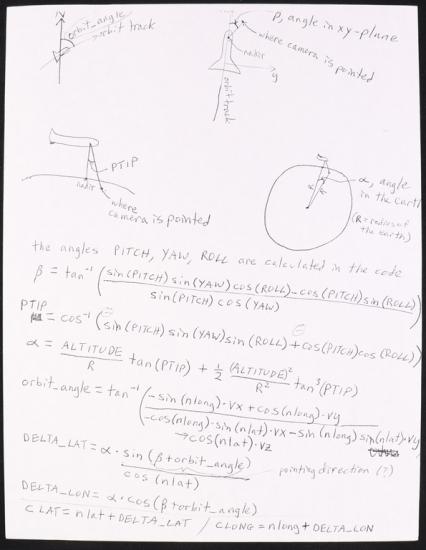 N
orbit_angle
orbit track
β, angle in xy-plane
where camera is pointed
nadir
y
orbit track
PTIP
nadir
where
camera is pointed
α, angle
in the earth
(R = radius of
the earth)
the angles PITCH, YAW, ROLL are calculated in the code
β = tan⁻¹ (sin(PITCH) sin(YAW) cos(ROLL) - cos(PITCH) sin(ROLL))
sin(PITCH) cos(YAW)
PTIP = cos⁻¹ (sin(PITCH) sin(YAW) sin(ROLL) + cos(PITCH) cos(ROLL))
α = ALTITUDE/R tan(PTIP) + 1/2 (ALTITUDE)²/R² tan³(PTIP)
orbit_angle = tan⁻¹ (-sin(nlong)·vx + cos(nlong)·vy
-cos(nlong)·sin(nlat)·vx - sin(nlong) sin(nlat)·vy)
→cos(nlat)·vz
DELTA_LAT = α · sin(β+orbit_angle)
cos(nlat)
pointing direction (?)
DELTA_LON = α · cos(β+orbit_angle)
CLAT = nlat + DELTA_LAT / CLONG = nlong + DELTA_LON